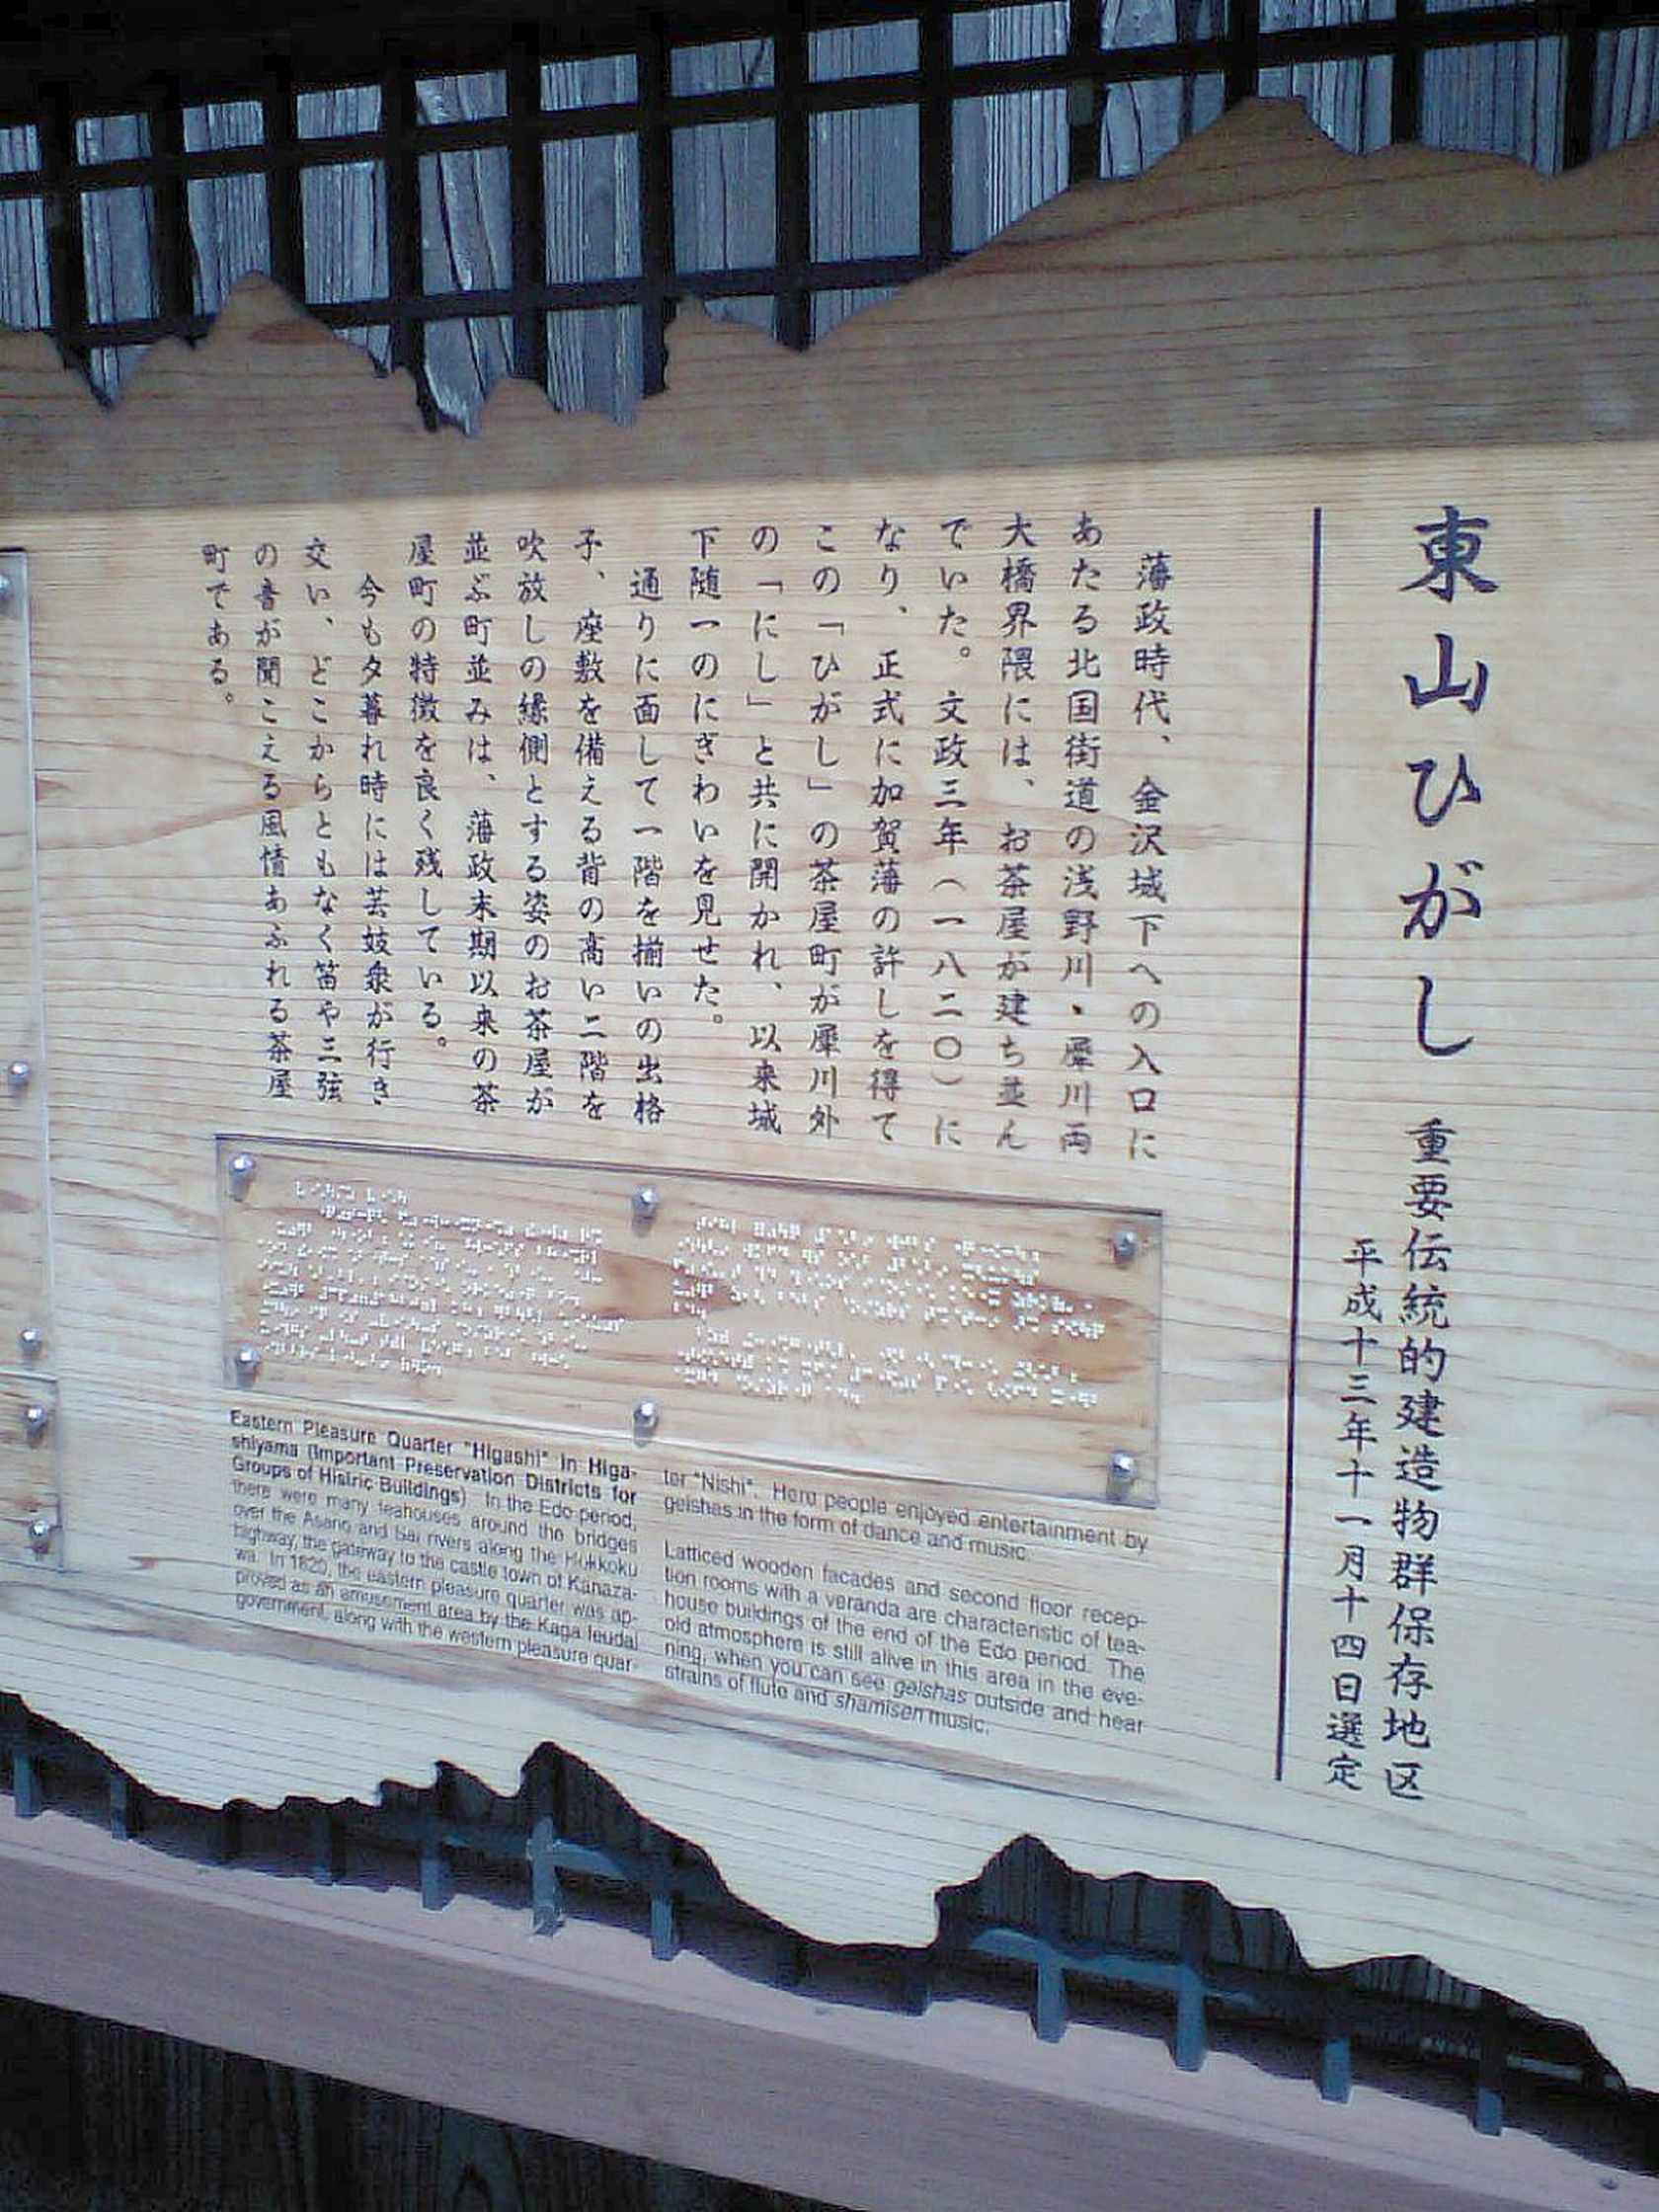 東山ひがし
重要伝統的建造物群保存地区
平成十三年十一月十四日選定
藩政時代、金沢城下への入口に
あたる北国街道の浅野川・犀川両
大橋界隈には、お茶屋が建ち並ん
でいた。文政三年(一八二〇)に
なり、正式に加賀藩の許しを得て
この「ひがし」の茶屋町が犀川外
の「にし」と共に開かれ、以来城
下随一のにぎわいを見せた。
通りに面して一階を揃いの出格
子、座敷を備える背の高い二階を
吹放しの縁側とする姿のお茶屋が
並ぶ町並みは、藩政末期以来の茶
屋町の特徴を良く残している。
今も夕暮れ時には芸妓衆が行き
交い、どこからともなく笛や三弦
の音が聞こえる風情あふれる茶屋
町である。
Eastern Pleasure Quarter "Higashi" in Higa-
shiyama (Important Preservation Districts for
Groups of Histric Buildings) In the Edo period,
there were many teahouses around the bridges
over the Asano and Sai rivers along the Hokkoku
highway, the gateway to the castle town of Kanaza-
wa. In 1820, the eastern pleasure quarter was ap-
proved as an amusement area by the Kaga feudal
government, along with the western pleasure quar-
ter "Nishi". Here people enjoyed entertainment by
geishas in the form of dance and music.
Latticed wooden facades and second floor recep-
tion rooms with a veranda are characteristic of tea-
house buildings of the end of the Edo period. The
old atmosphere is still alive in this area in the eve-
ning, when you can see geishas outside and hear
strains of flute and shamisen music.